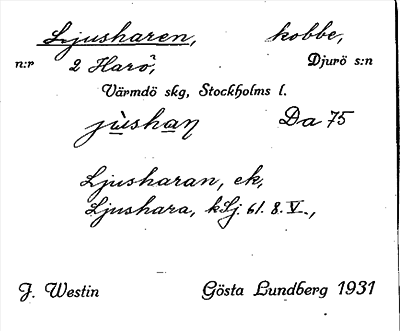 Ljusharen, kobbe,
n:r 2 Harö, Djurö s:n
Värmdö skg, Stockholms l.
jùshan Da 75
Ljusharan, ek,
Ljushara, kLj. 61. 8. V.,
J. Westin Gösta Lundberg 1931